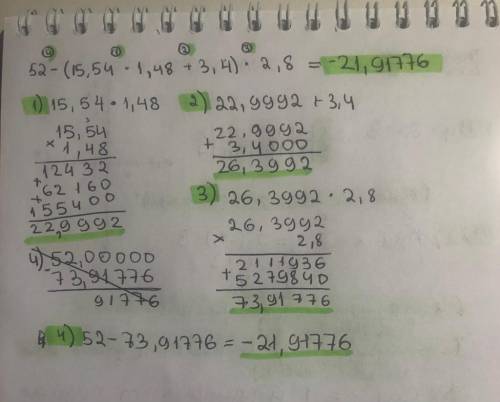 ④ ① ② ③
52-(15,54 · 1,48 + 3,4) · 2,8 = -21,91776
1) 15,54 · 1,48
3
15,54
× 1,48
12432
+ 62160
+ 155400
22,9992
2) 22,9992 + 3,4
22,9992
+ 3,4000
26,3992
3) 26,3992 · 2,8
26,3992
× 2,8
2111936
+ 5279840
73,91776
4) 52,00000
- 73,91776
91776
4) 52-73,91776 = -21,91776